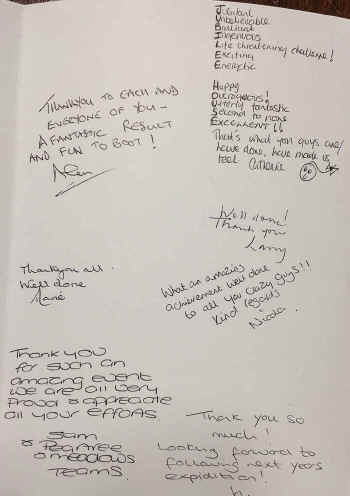 Jubilant
Unbelievable
Brilliant
Ingenious
Life threatening challenge!
Exciting
Energetic
Happy
Outrageous!
Utterly fantastic
Second to none
EXCELLENT!!
That's what you guys are/
have done, have made us
feel Catherine
THANKYOU TO EACH AND
EVERYONE OF YOU -
A FANTASTIC RESULT
AND FUN TO BOOT!
Alan
Well done!
Thank you
Larry
Thankyou all.
Well done
What an amazing
achievement well done
to all you crazy guys!!!
Kind regards
Nicola
Thank you
for such an
amazing event
we are all very
Proud & appreciate
all your efforts.
Sam
& Peartree
& meadows
Teams.
Thank you so
much!
Looking forward to
following next years
expidition!